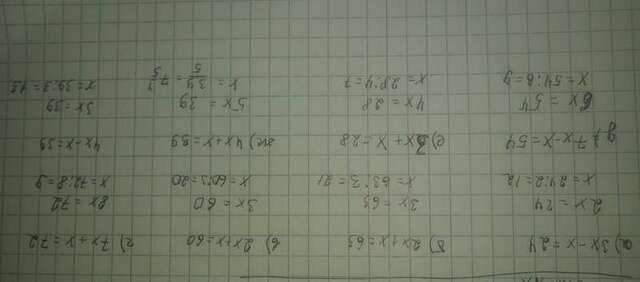 а) 3x - x = 24
2x = 24
x = 24:2 = 12
б) 2x + x = 63
3x = 63
x = 63:3 = 21
в) 2x + x = 60
3x = 60
x = 60:3 = 20
г) 7x + x = 72
8x = 72
x = 72:8 = 9
д) 7x - x = 54
6x = 54
x = 54:6 = 9
е) 3x + x = 28
4x = 28
x = 28:4 = 7
ж) 4x + x = 39
5x = 39
x = 39/5 = 7
4x - x = 39
3x = 39
x = 39:3 = 13